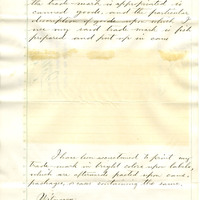 the trade-mark is appropriated is
canned goods, and the particular
description of goods upon which I
use my said trade-mark is fish
prepared and put up in cans
I have been accustomed to print my
trade-mark in bright colors upon labels,
which are afterwards pasted upon cans
packages, or cases containing the same.
Witnesses